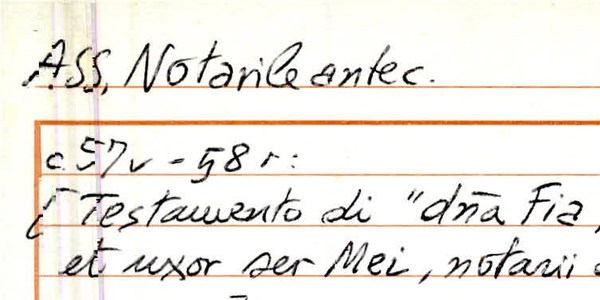 ASS, Notarile antec.
c. 57v - 58r:
[Testamento di "dn̄a Fia,
et uxor ser Mei, notarii